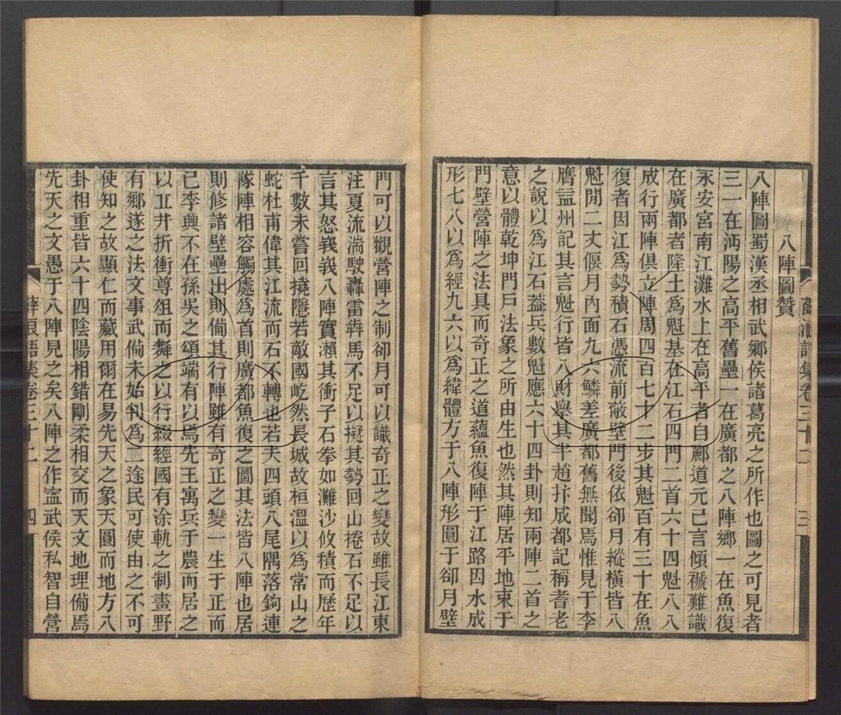 八陣圖贊
八陣圖蜀漢丞相武鄉侯諸葛亮之所作也圖之可見者
三一在沔陽之高平舊壘一在廣都之八陣鄉一在魚復
永安宮南江灘水上在高平者自酈道元已言傾褫難識
在廣都者隆土為魁基在江石四門二首六十四魁八八
成行兩陣俱立陣周四百七十二步其魁百有三十在魚
復者因江為勢積石憑流前蔽壁門後依卻月縱橫皆八
魁閒二丈偃月內面九六鱗差廣都舊無聞焉惟見于李
膺益州記其言魁行皆八財舉其半趙抃成都記稱耆老
之說以為江石葢兵數魁應六十四卦則知兩陣二首之
意以體乾坤門戶法象之所由生也然其陣居平地束于
門壁營陣之法具而奇正之道蘊魚復陣于江路因水成
形七八以為經九六以為緯體方于八陣形圓于卻月壁
三
門可以觀營陣之制卻月可以識奇正之變故雖長江東
注夏流湍駛轟雷犇馬不足以擬其勢回山捲石不足以
言其怒峩峩八陣實瀨其衝子石拳如灘沙攸積而歷年
千數未嘗回撓隱若敵國屹然長城故桓溫以為常山之
蛇杜甫偉其江流而石不轉也若夫四頭八尾隅落鉤連
隊陣相容觸處為首則廣都魚復之圖其法皆八陣也居
則修諸壁壘出則備其行陣雖有奇正之變一生于正而
已李興不在孫吳之頌端有以焉先王寓兵于農而居之
以丘井折衝尊俎而舞之以行綴經國有涂軌之制畫野
有鄉遂之法文事武備未始判為二途民可使由之不可
使知之故顯仁而藏用爾在易先天之象天圓而地方八
卦相重皆六十四陰陽相錯剛柔相交而天文地理備焉
先天之文愚于八陣見之矣八陣之作甯武侯私智自營
四